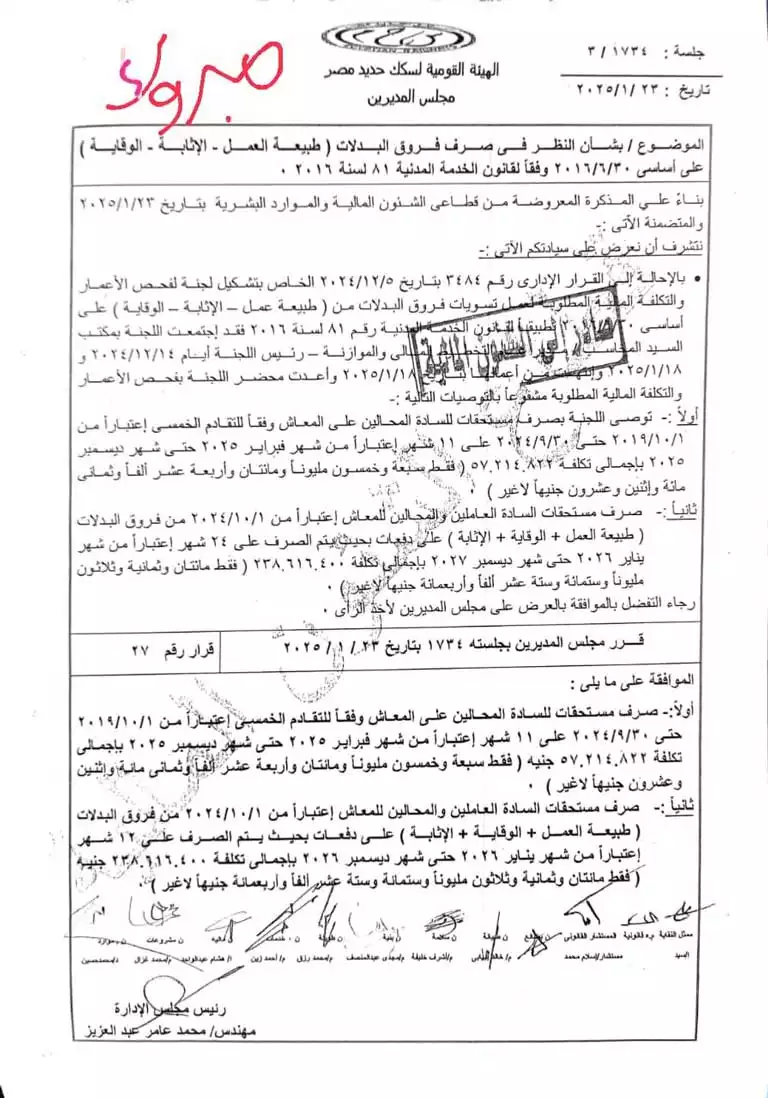 مبروك
جلسة : ١٧٣٤ / ٣
تاريخ : ٢٠٢٥/١/٢٣
الهيئة القومية لسكك حديد مصر
مجلس المديرين
الموضوع / بشأن النظر فى صرف فروق البدلات ( طبيعة العمل - الإثابة - الوقاية )
على أساسى ٢٠١٦/٦/٣٠ وفقاً لقانون الخدمة المدنية ٨١ لسنة ٢٠١٦ ٠
بناءً علي المذكرة المعروضة من قطاعى الشئون المالية والموارد البشرية بتاريخ ٢٠٢٥/١/٢٣
والمتضمنة الآتى :-
نتشرف أن نعرض على سيادتكم الأتى :-
• بالإحالة إلى القرار الإدارى رقم ٣٤٨٤ بتاريخ ٢٠٢٤/١٢/٥ الخاص بتشكيل لجنة لفحص الأعمار
والتكلفة المالية المطلوبة لعمل تسويات فروق البدلات من ( طبيعة عمل – الإثابة – الوقاية ) على
أساسى ٢٠١٦ تطبيقاً لقانون الخدمة المدنية رقم ٨١ لسنة ٢٠١٦ فقد إجتمعت اللجنة بمكتب
السيد المحاسب / مدير عام التخطيط المالى والموازنة – رئيس اللجنة أيام ٢٠٢٤/١٢/١٤ و
٢٠٢٥/١/١٨ وإنتهت من أعمالها بتاريخ ٢٠٢٥/١/١٨ وأعدت محضر اللجنة بفحص الأعمار
والتكلفة المالية المطلوبة مشفوعاً بالتوصيات التالية :-
أولاً :- توصى اللجنة بصرف مستحقات للسادة المحالين على المعاش وفقاً للتقادم الخمسى إعتباراً من
٢٠١٩/١٠/١ حتى ٢٠٢٤/٩/٣٠ على ١١ شهر إعتباراً من شهر فبراير ٢٠٢٥ حتى شهر ديسمبر
٢٠٢٥ بإجمالى تكلفة ٥٧.٢١٤.٨٢٢ ( فقط سبعة وخمسون مليوناً ومائتان وأربعة عشر ألفاً وثمانى
مائة وإثنين وعشرون جنيهاً لاغير ) ٠
ثانياً :- صرف مستحقات السادة العاملين والمحالين للمعاش إعتباراً من ٢٠٢٤/١٠/١ من فروق البدلات
( طبيعة العمل + الوقاية + الإثابة ) على دفعات بحيث يتم الصرف على ٢٤ شهر إعتباراً من شهر
يناير ٢٠٢٦ حتى شهر ديسمبر ٢٠٢٧ بإجمالى تكلفة ٢٣٨.٦١٦.٤٠٠ ( فقط مائتان وثمانية وثلاثون
مليوناً وستمائة وستة عشر ألفاً وأربعمائة جنيهاً لاغير ) ٠
رجاء التفضل بالموافقة بالعرض على مجلس المديرين لأخذ الرأى ٠
صادر إلى الشئون المالية
قرر مجلس المديرين بجلسته ١٧٣٤ بتاريخ ٢٣ / ١ / ٢٠٢٥
قرار رقم ٢٧
الموافقة على ما يلى :
أولاً:- صرف مستحقات للسادة المحالين على المعاش وفقاً للتقادم الخمسى إعتباراً من ٢٠١٩/١٠/١
حتى ٢٠٢٤/٩/٣٠ على ١١ شهر إعتباراً من شهر فبراير ٢٠٢٥ حتى شهر ديسمبر ٢٠٢٥ بإجمالى
تكلفة ٥٧.٢١٤.٨٢٢ جنيه ( فقط سبعة وخمسون مليوناً ومائتان وأربعة عشر ألفاً وثمانى مائة وإثنين
وعشرون جنيهاً لاغير ) ٠
ثانياً :- صرف مستحقات السادة العاملين والمحالين للمعاش إعتباراً من ٢٠٢٤/١٠/١ من فروق البدلات
( طبيعة العمل + الوقاية + الإثابة ) على دفعات بحيث يتم الصرف على ١٢ شهر
إعتباراً من شهر يناير ٢٠٢٦ حتى شهر ديسمبر ٢٠٢٦ بإجمالى تكلفة ٢٣٨.٦١٦.٤٠٠ جنيه
( فقط مائتان وثمانية وثلاثون مليوناً وستمائة وستة عشر ألفاً وأربعمائة جنيهاً لاغير ) ٠
ممثل النقابة م.ه قانونية المستشار القانونى ن سلامة ن بنية ن طوية ن ٠ خدمات ن ماليه ن مشروعات ن بموارد
السيد مستشار/إسلام محمد م/أشرف خليفة م/مجدى عبدالمنصف م/محمد رزق م/أحمد زين أ/ هشام عبدالواحد م/محمد غزال د/محمدحسين
رئيس مجلس الإدارة
مهندس/ محمد عامر عبد العزيز